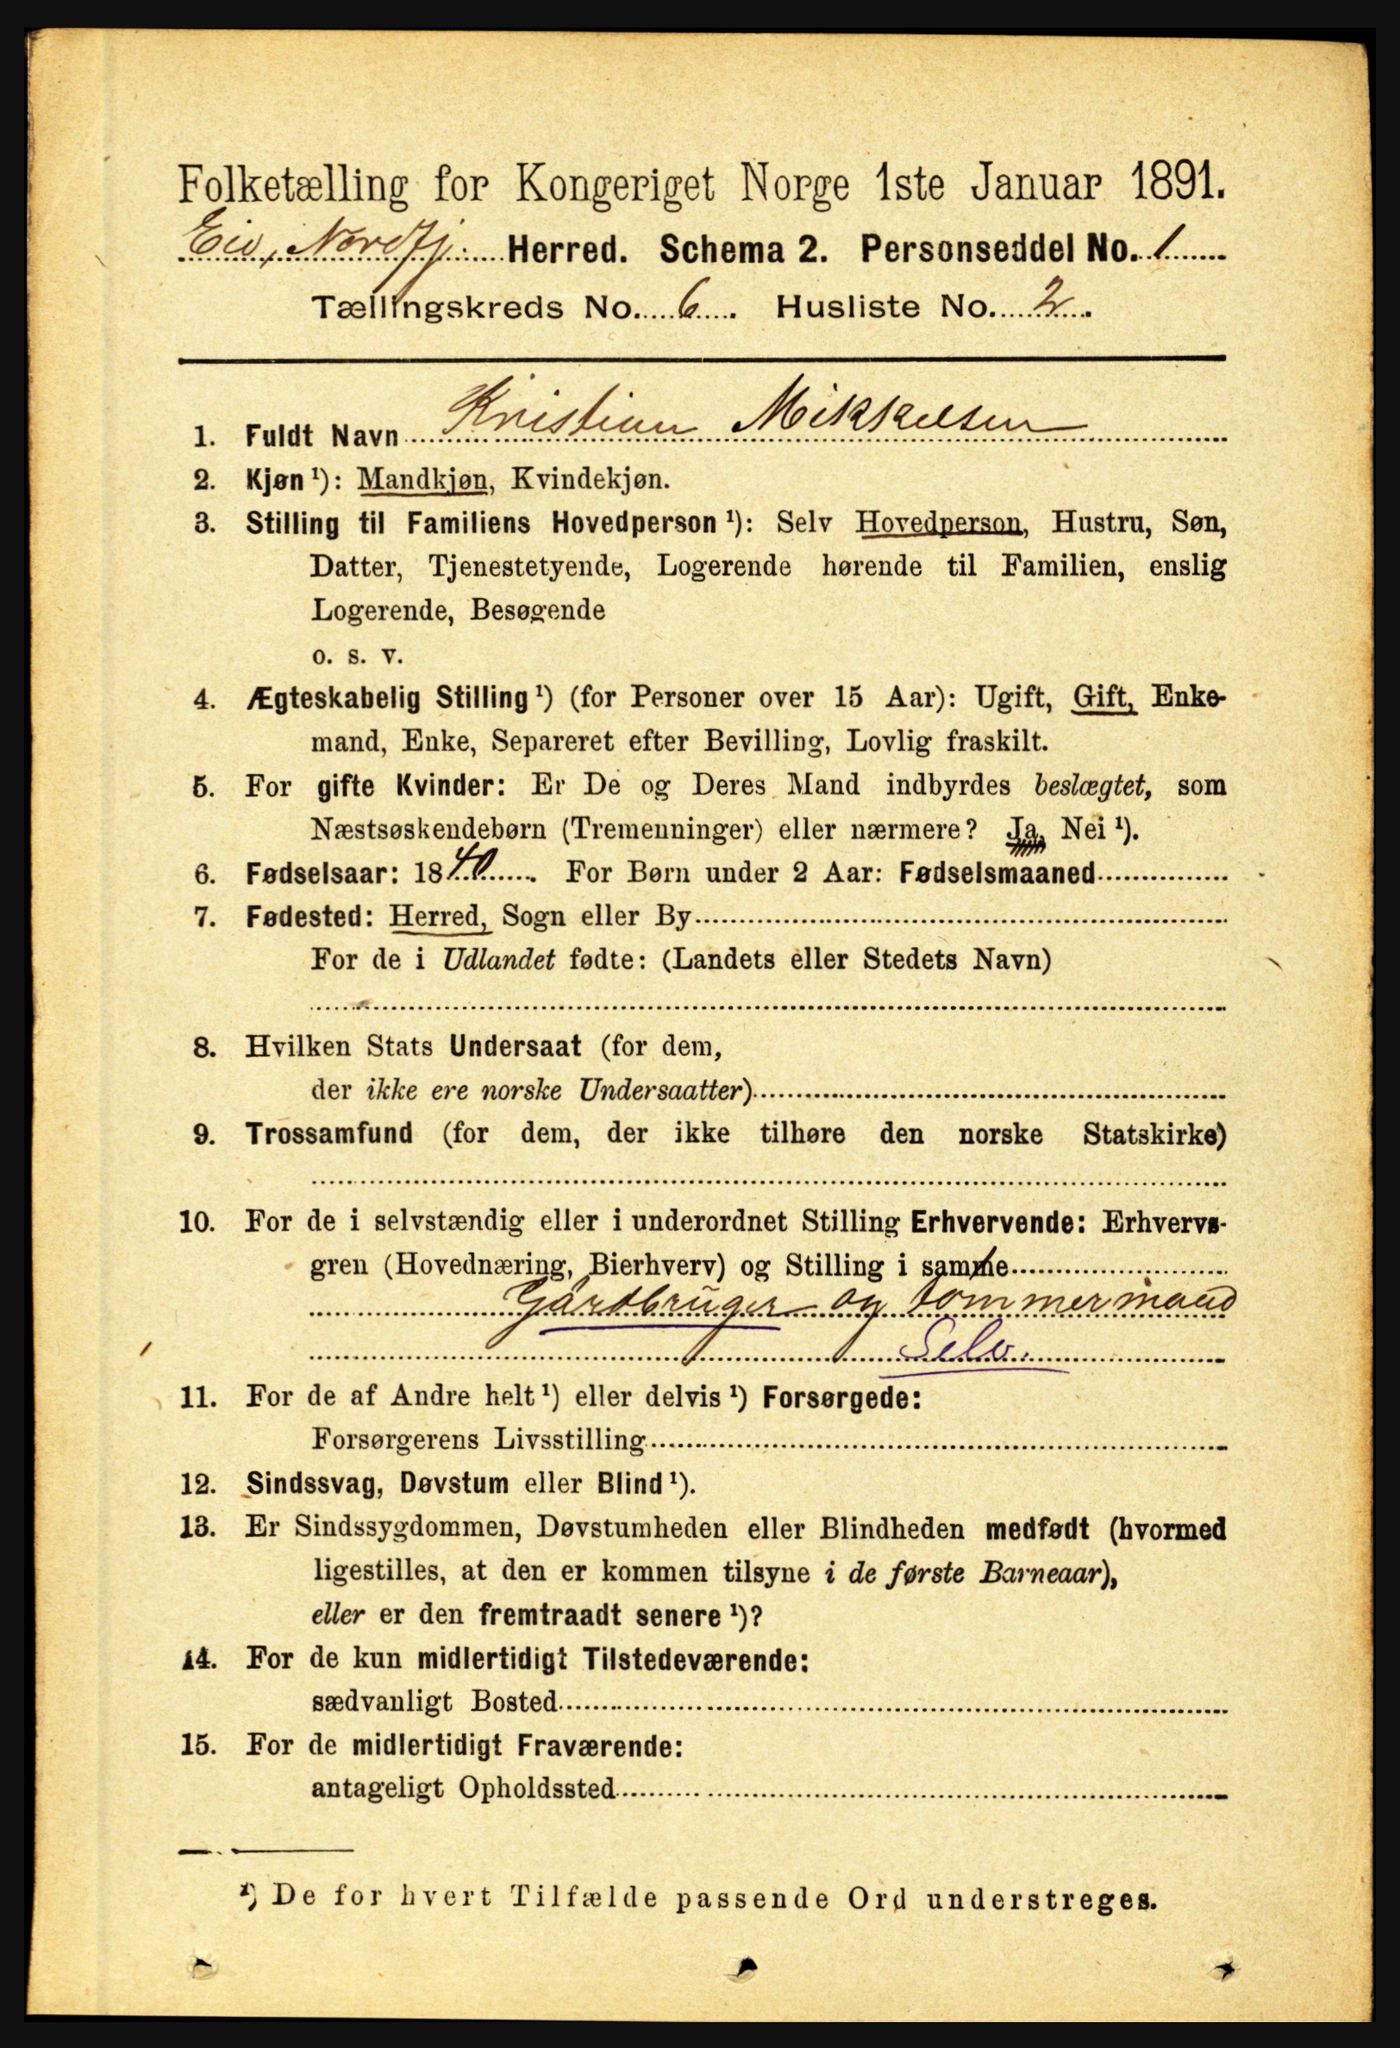 Folketælling for Kongeriget Norge 1ste Januar 1891.
Eid, Nordfj. Herred. Schema 2. Personseddel No. 1
Tællingskreds No. 6. Husliste No. 2.
1. Fuldt Navn Kristian Mikkelsen
2. Kjøn ¹): Mandkjøn, Kvindekjøn.
3. Stilling til Familiens Hovedperson ¹): Selv Hovedperson, Hustru, Søn,
Datter, Tjenestetyende, Logerende hørende til Familien, enslig
Logerende, Besøgende
o. s. v.
4. Ægteskabelig Stilling ¹) (for Personer over 15 Aar): Ugift, Gift, Enke-
mand, Enke, Separeret efter Bevilling, Lovlig fraskilt.
5. For gifte Kvinder: Er De og Deres Mand indbyrdes beslægtet, som
Næstsøskendebørn (Tremenninger) eller nærmere? Ja, Nei ¹).
6. Fødselsaar: 1840. For Børn under 2 Aar: Fødselsmaaned
7. Fødested: Herred, Sogn eller By
For de i Udlandet fødte: (Landets eller Stedets Navn)
8. Hvilken Stats Undersaat (for dem,
der ikke ere norske Undersaatter)
9. Trossamfund (for dem, der ikke tilhøre den norske Statskirke)
10. For de i selvstændig eller i underordnet Stilling Erhvervende: Erhvervs-
gren (Hovednæring, Bierhverv) og Stilling i samme
Gårdbruger og tommermand
Selv.
11. For de af Andre helt ¹) eller delvis ¹) Forsørgede:
Forsørgerens Livsstilling
12. Sindssvag, Døvstum eller Blind ¹).
13. Er Sindssygdommen, Døvstumheden eller Blindheden medfødt (hvormed
ligestilles, at den er kommen tilsyne i de første Barneaar),
eller er den fremtraadt senere ¹)?
14. For de kun midlertidigt Tilstedeværende:
sædvanligt Bosted
15. For de midlertidigt Fraværende:
antageligt Opholdssted
¹) De for hvert Tilfælde passende Ord understreges.